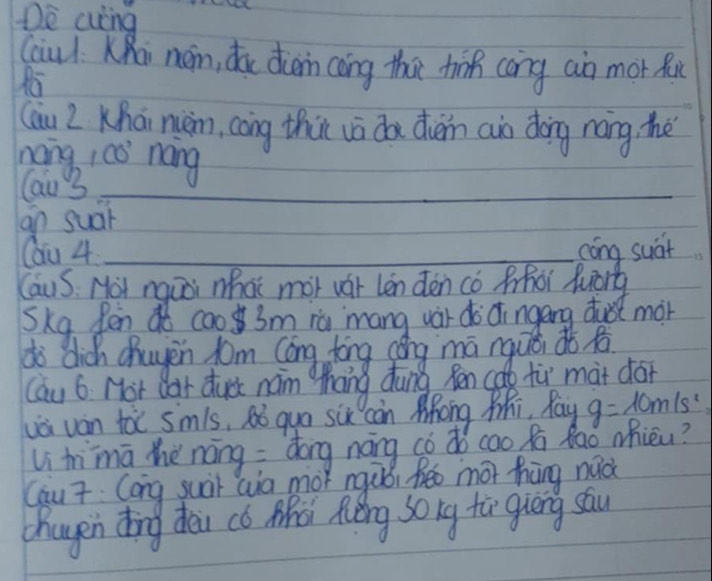 Đề cương
Câu 1. Khái niệm, đặc điểm công thức tính công của một lực
là
Câu 2 Khái niệm, công thức và đặc điểm của động năng, thế
năng, cơ năng
Câu 3
áp suất
Câu 4. công suất
Câu 5. Một người nhấc một vật lên đến có khối lượng
5kg lên độ cao 3m rồi mang vật đó đi ngang được một
độ dịch chuyển 10m Công tổng cộng mà người đó là
Câu 6. Một vật được ném thẳng đứng lên cao từ mặt đất
với vận tốc 5m/s. Bỏ qua sức cản không khí, lấy g = 10m/s²
Vị trí mà thế năng = động năng có độ cao là bao nhiêu?
Câu 7. Công suất của một người kéo một thùng nước
chuyển động đều có khối lượng 30 kg từ giếng sâu